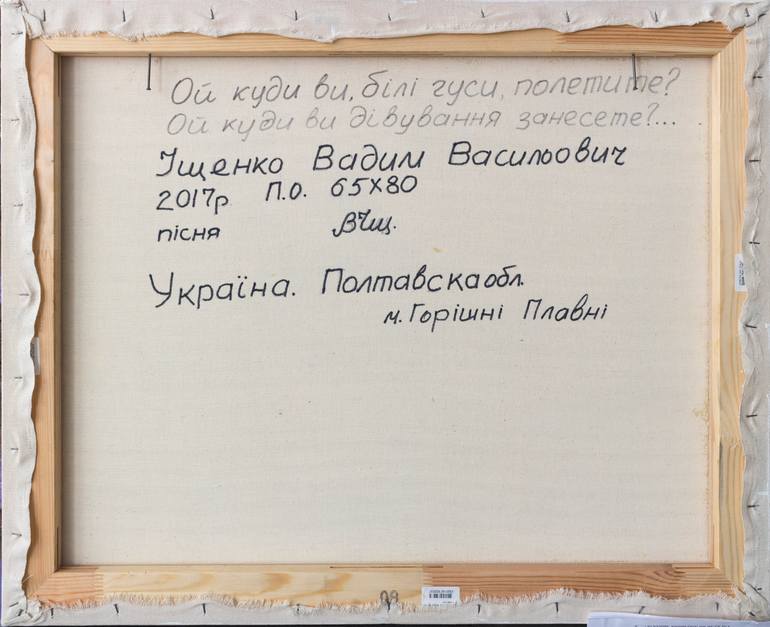 Ой куди ви, білі гуси, полетите?
Ой куди ви дівування занесете?...
Іщенко Вадим Васильович
2017р П.О. 65х80
пісня
Україна. Полтавска обл.
м. Горішні Плавні
08